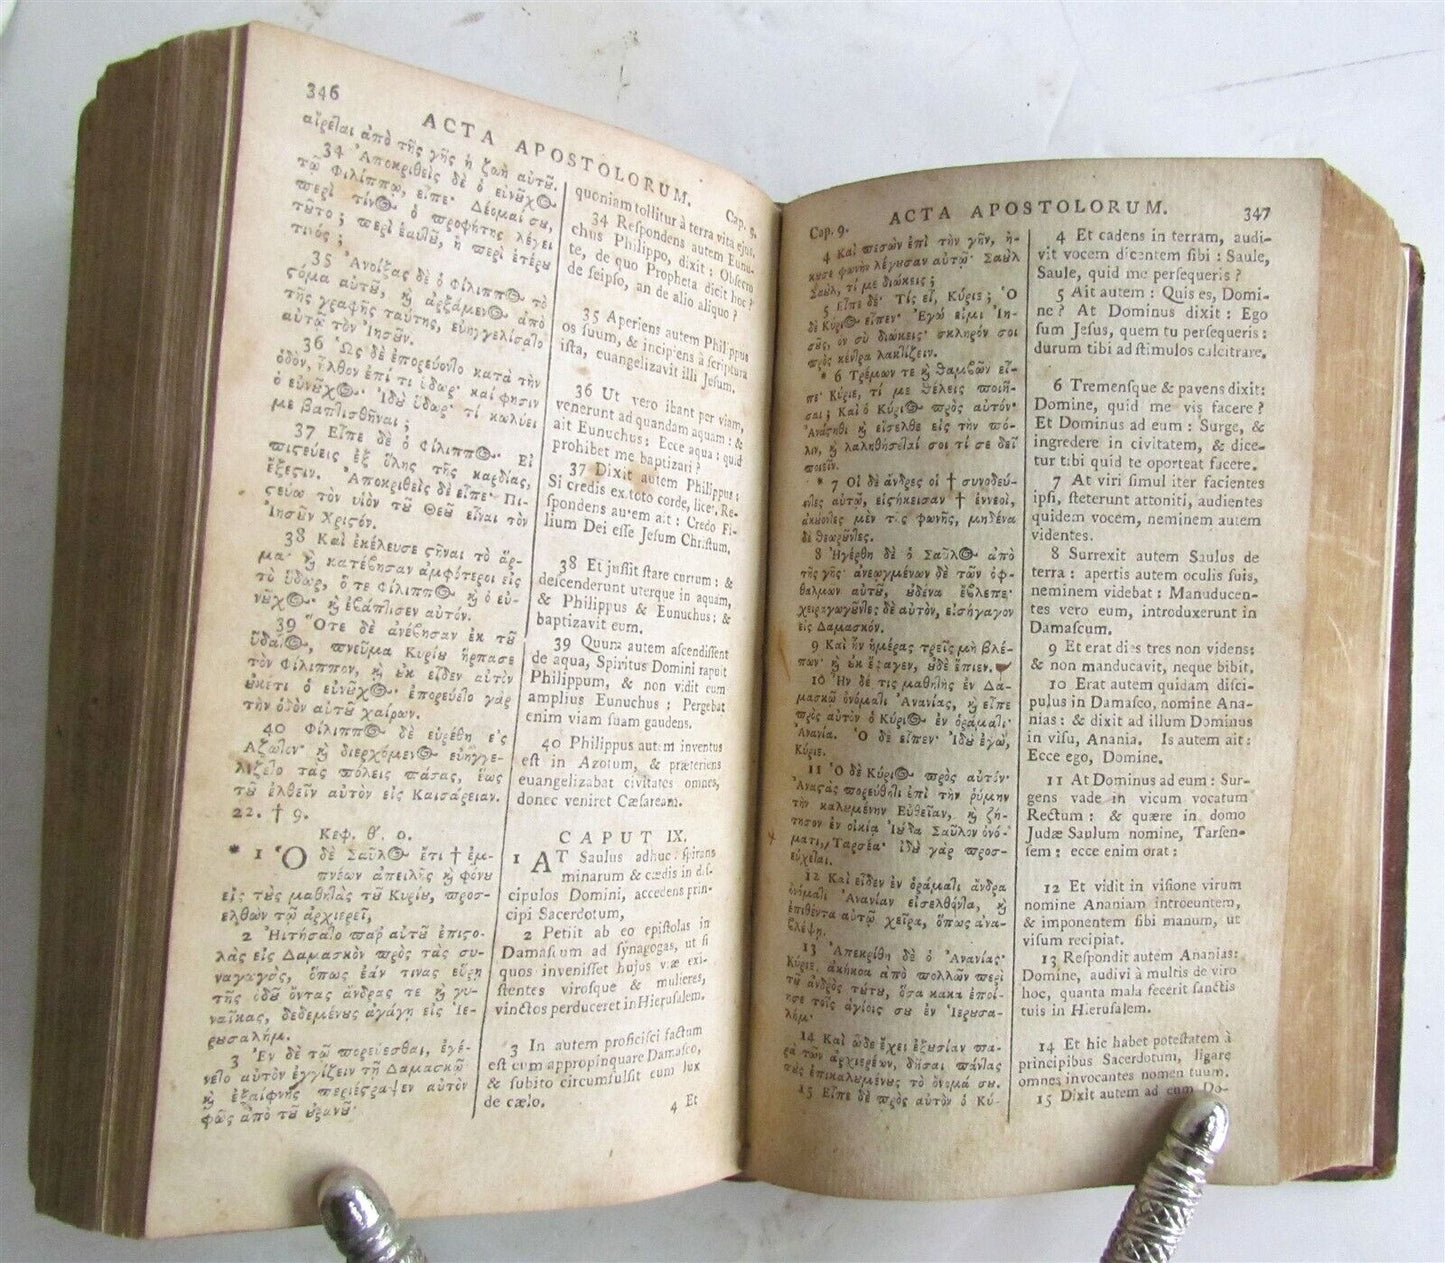 346
ACTA APOSTOLORUM.
Cap. 9.
αἴρεται ἀπὸ τῆς γῆς ἡ ζωὴ αὐτȣ͂.
34 Ἀποκριθεὶς δὲ ὁ εὐνȣ͂χος
τῷ Φιλίππῳ, εἶπε· Δέομαί σȣ,
περὶ τίνος ὁ προφήτης λέγει
τȣ͂το; περὶ ἑαυτȣ͂, ἢ περὶ ἑτέρȣ
τινός;
35 Ἀνοίξας δὲ ὁ Φίλιππος τὸ
ςόμα αὑτȣ͂, ϗ ἀρξάμενος ἀπὸ
τῆς γραφῆς ταύτης, εὐηγγελίσατο
αὐτῷ τὸν Ἰησȣ͂ν.
36 Ὡς δὲ ἐπορεύοντο κατὰ τὴν
ὁδὸν, ἦλθον ἐπί τι ὕδωρ· καί φησιν
ὁ εὐνȣ͂χος· Ἰδȣ̀ ὕδωρ· τί κωλύει
με βαπτισθῆναι;
37 Εἶπε δὲ ὁ Φίλιππος· Εἰ
πιςεύεις ἐξ ὅλης τῆς καρδίας,
ἔξεςιν. Ἀποκριθεὶς δὲ εἶπε· Πι-
ςεύω τὸν υἱὸν τȣ͂ Θεȣ͂ εἶναι τὸν
Ἰησȣ͂ν Χριςόν.
38 Καὶ ἐκέλευσε ςῆναι τὸ ἅρ-
μα· ϗ κατέβησαν ἀμφότεροι εἰς
τὸ ὕδωρ, ὅ τε Φίλιππος ϗ ὁ εὐ-
νȣ͂χος· ϗ ἐβάπτισεν αὐτόν.
39 Ὅτε δὲ ἀνέβησαν ἐκ τȣ͂
ὕδατος, πνεῦμα Κυρίȣ ἥρπασε
τὸν Φίλιππον, ϗ ȣ̓κ εἶδεν αὐτὸν
ȣ̓κέτι ὁ εὐνȣ͂χος· ἐπορεύετο γὰρ
τὴν ὁδὸν αὑτȣ͂ χαίρων.
40 Φίλιππος δὲ εὑρέθη εἰς
Ἄζωτον· ϗ διερχόμενος εὐηγγε-
λίζετο τὰς πόλεις πάσας, ἕως
τȣ͂ ἐλθεῖν αὐτὸν εἰς Καισάρειαν.
22. † 9.
Κεφ. θʹ. 9.
* 1 Ὁ δὲ Σαῦλος ἔτι † ἐμ-
πνέων ἀπειλῆς ϗ φόνȣ
εἰς τȣ̀ς μαθητὰς τȣ͂ Κυρίȣ, προσ-
ελθὼν τῷ ἀρχιερεῖ,
2 ᾘτήσατο παρ᾽ αὐτȣ͂ ἐπιςο-
λὰς εἰς Δαμασκὸν πρὸς τὰς συ-
ναγωγὰς, ὅπως ἐάν τινας εὕρῃ
τῆς ὁδȣ͂ ὄντας ἄνδρας τε ϗ γυ-
ναῖκας, δεδεμένȣς ἀγάγῃ εἰς Ἱε-
ρȣσαλήμ.
3 Ἐν δὲ τῷ πορεύεσθαι, ἐγέ-
νετο αὐτὸν ἐγγίζειν τῇ Δαμασκῷ·
ϗ ἐξαίφνης περιήςραψεν αὐτὸν
φῶς ἀπὸ τȣ͂ ȣ̓ρανȣ͂·
quoniam tollitur à terra vita ejus.
34 Reſpondens autem Eunu-
chus Philippo, dixit: Obſecro
te, de quo Propheta dicit hoc?
de ſeipſo, an de alio aliquo?
35 Aperiens autem Philippus
os ſuum, & incipiens à ſcriptura
iſta, euangelizavit illi Jeſum.
36 Ut vero ibant per viam,
venerunt ad quandam aquam: &
ait Eunuchus: Ecce aqua: quid
prohibet me baptizari?
37 Dixit autem Philippus:
Si credis ex toto corde, licet. Re-
ſpondens autem ait: Credo Fi-
lium Dei eſſe Jeſum Chriſtum.
38 Et juſſit ſtare currum: &
deſcenderunt uterque in aquam,
& Philippus & Eunuchus: &
baptizavit eum.
39 Quum autem aſcendiſſent
de aqua, Spiritus Domini rapuit
Philippum, & non vidit eum
amplius Eunuchus: Pergebat
enim viam ſuam gaudens.
40 Philippus autem inventus
eſt in Azotum, & præteriens
euangelizabat civitates omnes,
donec veniret Cæſaream.
CAPUT IX.
1 AT Saulus adhuc ſpirans
minarum & cædis in diſ-
cipulos Domini, accedens prin-
cipi Sacerdotum,
2 Petiit ab eo epiſtolas in
Damaſcum ad ſynagogas, ut ſi
quos inveniſſet hujus viæ exi-
ſtentes viroſque & mulieres,
vinctos perduceret in Hieruſalem.
3 In autem proficiſci factum
eſt eum appropinquare Damaſco,
& ſubito circumfulſit eum lux
de cælo.
4 Et
Cap. 9.
ACTA APOSTOLORUM.
347
4 Καὶ πεσὼν ἐπὶ τὴν γῆν, ἤ-
κȣσε φωνὴν λέγȣσαν αὐτῷ· Σαȣ̀λ
Σαȣ̀λ, τί με διώκεις;
5 Εἶπε δέ· Τίς εἶ, Κύριε; Ὁ
δὲ Κύριος εἶπεν· Ἐγώ εἰμι Ἰη-
σȣ͂ς, ὃν σὺ διώκεις· σκληρόν σοι
πρὸς κέντρα λακτίζειν.
* 6 Τρέμων τε ϗ θαμβῶν εἶ-
πε· Κύριε, τί με θέλεις ποιῆ-
σαι; Καὶ ὁ Κύριος πρὸς αὐτόν·
Ἀνάςηθι ϗ εἴσελθε εἰς τὴν πό-
λιν, ϗ λαληθήσεταί σοι τί σε δεῖ
ποιεῖν.
* 7 Οἱ δὲ ἄνδρες οἱ † συνοδεύ-
οντες αὐτῷ, εἱςήκεισαν † ἐννεοὶ,
ἀκȣ́οντες μὲν τῆς φωνῆς, μηδένα
δὲ θεωρȣ͂ντες.
8 Ἠγέρθη δὲ ὁ Σαῦλος ἀπὸ
τῆς γῆς· ἀνεῳγμένων δὲ τῶν ὀφ-
θαλμῶν αὐτȣ͂, ȣ̓δένα ἔβλεπε·
χειραγωγȣ͂ντες δὲ αὐτὸν, εἰσήγαγον
εἰς Δαμασκόν.
9 Καὶ ἦν ἡμέρας τρεῖς μὴ βλέ-
πων· ϗ ȣ̓κ ἔφαγεν, ȣ̓δὲ ἔπιεν.
10 Ἦν δέ τις μαθητὴς ἐν Δα-
μασκῷ ὀνόματι Ἀνανίας, ϗ εἶπε
πρὸς αὐτὸν ὁ Κύριος ἐν ὁράματι·
Ἀνανία. Ὁ δὲ εἶπεν· Ἰδȣ̀ ἐγὼ,
Κύριε.
11 Ὁ δὲ Κύριος πρὸς αὐτόν·
Ἀναςὰς πορεύθητι ἐπὶ τὴν ῥύμην
τὴν καλȣμένην Εὐθεῖαν, ϗ ζή-
τησον ἐν οἰκίᾳ Ἰȣ́δα Σαῦλον ὀνό-
ματι, Ταρσέα· ἰδȣ̀ γὰρ προσ-
εύχεται.
12 Καὶ εἶδεν ἐν ὁράματι ἄνδρα
ὀνόματι Ἀνανίαν εἰσελθόντα, ϗ
ἐπιθέντα αὐτῷ χεῖρα, ὅπως ἀνα-
βλέψῃ.
13 Ἀπεκρίθη δὲ ὁ Ἀνανίας·
Κύριε, ἀκήκοα ἀπὸ πολλῶν περὶ
τȣ͂ ἀνδρὸς τȣ́τȣ, ὅσα κακὰ ἐποί-
ησε τοῖς ἁγίοις σȣ ἐν Ἱερȣσα-
λήμ·
14 Καὶ ὧδε ἔχει ἐξȣσίαν πα-
ρὰ τῶν ἀρχιερέων, δῆσαι πάντας
τȣ̀ς ἐπικαλȣμένȣς τὸ ὄνομά σȣ.
15 Εἶπε δὲ πρὸς αὐτὸν ὁ Κύ-
4 Et cadens in terram, audi-
vit vocem dicentem ſibi: Saule,
Saule, quid me perſequeris?
5 Ait autem: Quis es, Domi-
ne? At Dominus dixit: Ego
ſum Jeſus, quem tu perſequeris:
durum tibi ad ſtimulos calcitrare.
6 Tremenſque & pavens dixit:
Domine, quid me vis facere?
Et Dominus ad eum: Surge, &
ingredere in civitatem, & dice-
tur tibi quid te oporteat facere.
7 At viri ſimul iter facientes
ipſi, ſteterunt attoniti, audientes
quidem vocem, neminem autem
videntes.
8 Surrexit autem Saulus de
terra: apertis autem oculis ſuis,
neminem videbat: Manuducen-
tes vero eum, introduxerunt in
Damaſcum.
9 Et erat dies tres non videns:
& non manducavit, neque bibit.
10 Erat autem quidam diſci-
pulus in Damaſco, nomine Ana-
nias: & dixit ad illum Dominus
in viſu, Anania. Is autem ait:
Ecce ego, Domine.
11 At Dominus ad eum: Sur-
gens vade in vicum vocatum
Rectum: & quære in domo
Judæ Saulum nomine, Tarſen-
ſem: ecce enim orat:
12 Et vidit in viſione virum
nomine Ananiam introeuntem,
& imponentem ſibi manum, ut
viſum recipiat.
13 Reſpondit autem Ananias:
Domine, audivi à multis de viro
hoc, quanta mala fecerit ſanctis
tuis in Hieruſalem.
14 Et hic habet poteſtatem à
principibus Sacerdotum, ligare
omnes invocantes nomen tuum.
15 Dixit autem ad eum Do-